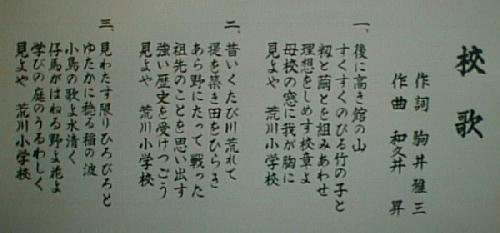 校歌
作詞 駒井雅三
作曲 和久井 昇
一、後に高き館の山
すくすくのびる竹の子と
籾と繭とを組みあわせ
理想をしめす校章よ
母校の窓に我が胸に
見よや 荒川小学校
二、昔いくたび川荒れて
堤を築き田をひらき
あら野にたって戦った
祖先のことを思い出す
強い歴史を受けつごう
見よや 荒川小学校
三、見わたす限りひろびろと
ゆたかに稔る稲の波
小鳥の歌よ水清く
仔馬がはねる野よ花よ
学びの庭のうるわしく
見よや 荒川小学校